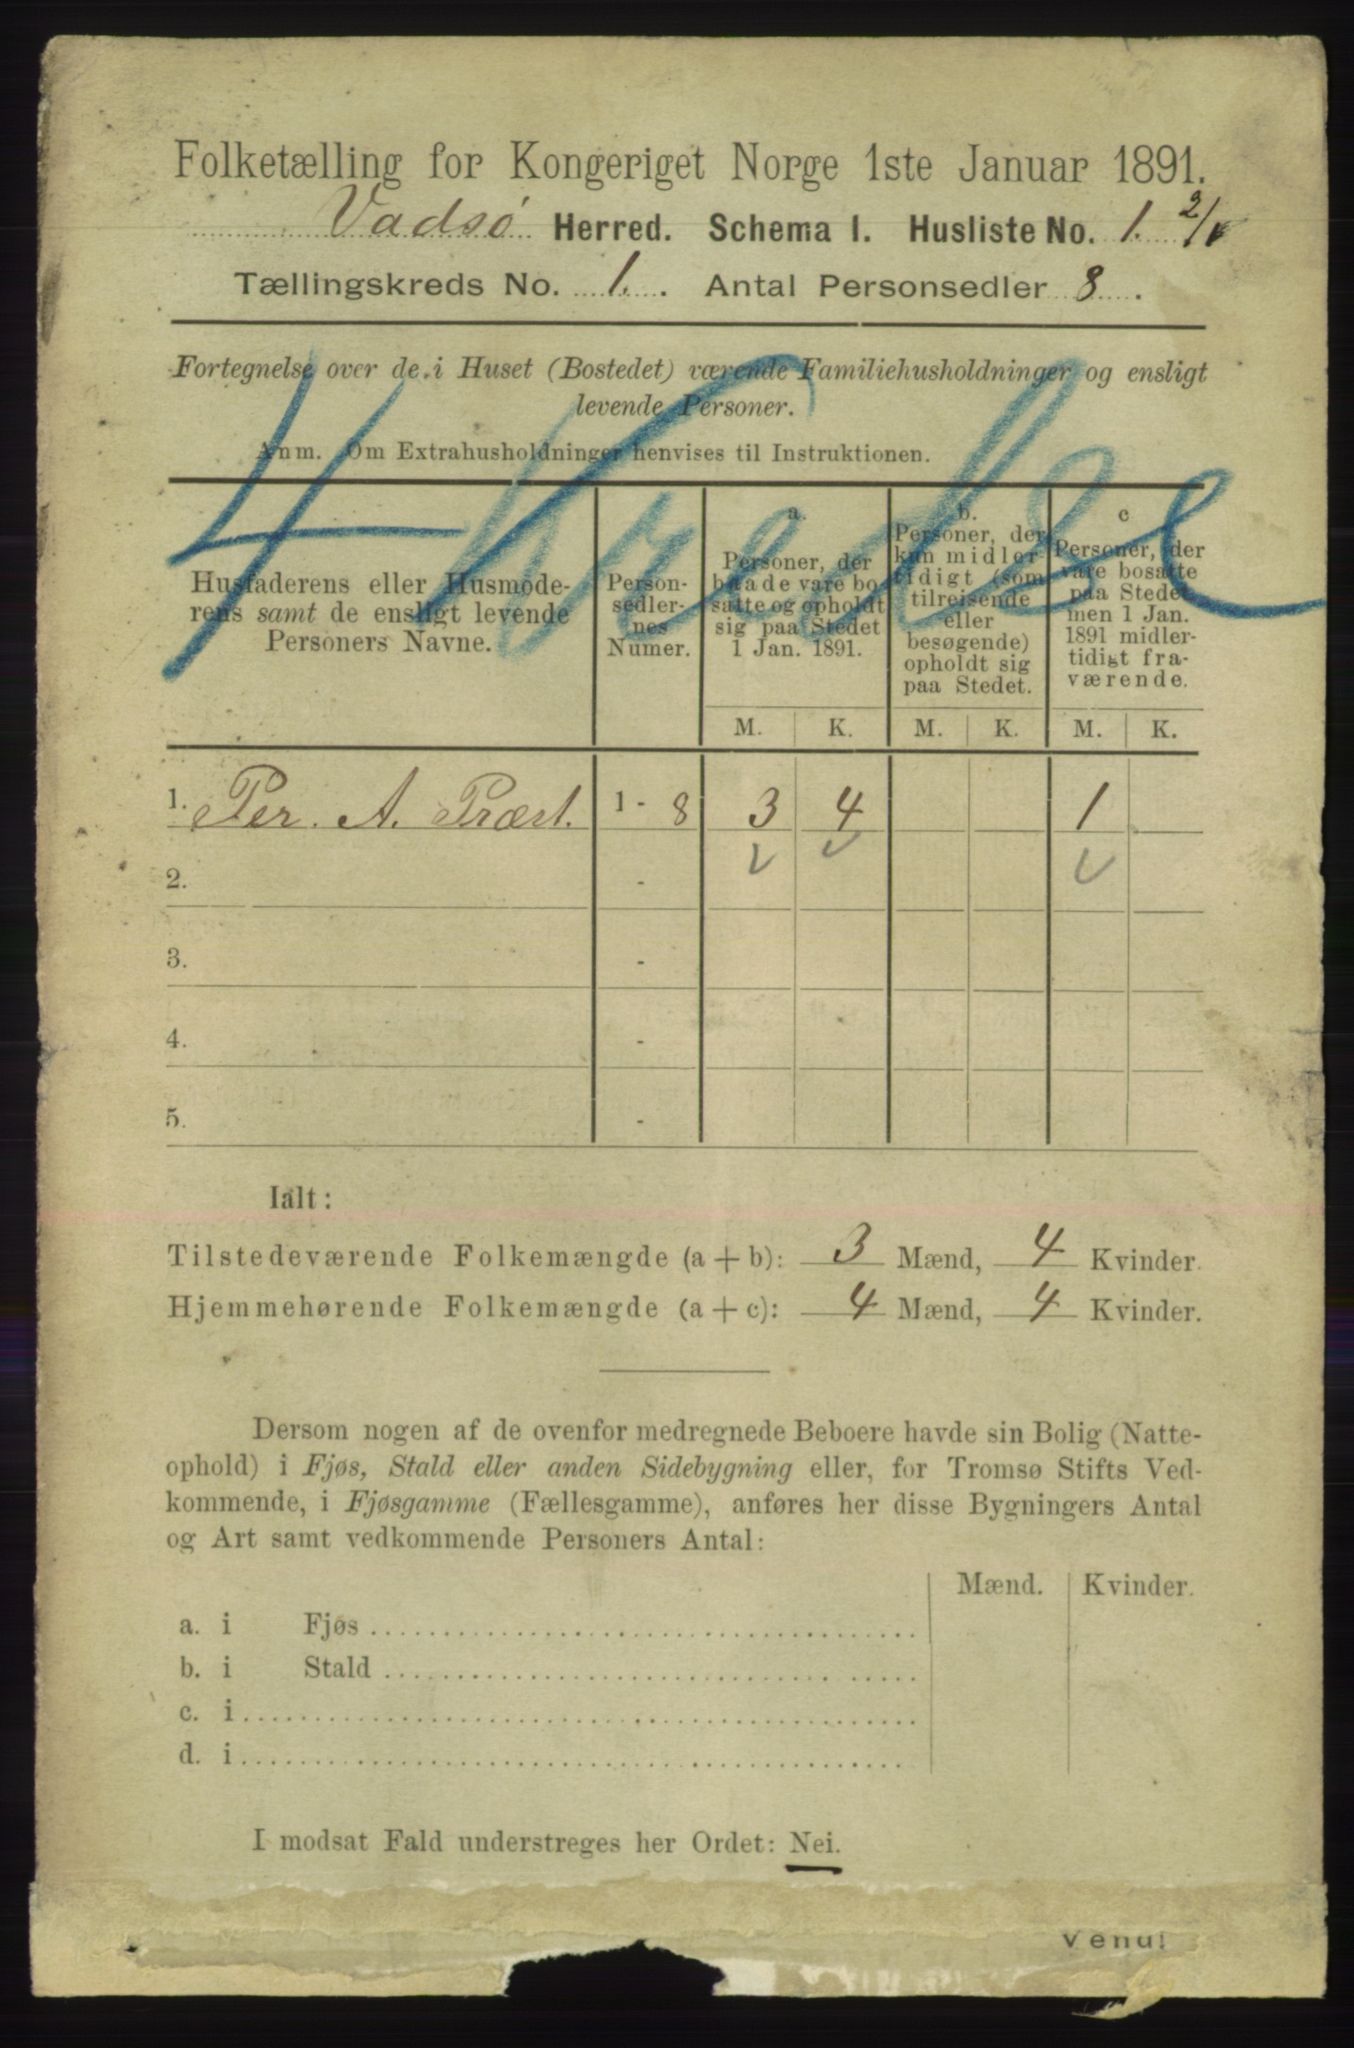 Folketælling for Kongeriget Norge 1ste Januar 1891.
Vadsø Herred. Schema I. Husliste No. 1. 2/1
Tællingskreds No. 1. Antal Personsedler 8.
Fortegnelse over de i Huset (Bostedet) værende Familiehusholdninger og ensligt
levende Personer.
Anm. Om Extrahusholdninger henvises til Instruktionen.
4
Husfaderens eller Husmode-
rens samt de ensligt levende
Personers Navne.
Person-
sedler-
nes
Numer.
a.
Personer, der
baade vare bo-
satte og opholdt
sig paa Stedet
1 Jan. 1891.
b.
Personer, der
kun midler-
tidigt (som
tilreisende
eller
besøgende)
opholdt sig
paa Stedet.
c
Personer, der
vare bosatte
paa Stedet
men 1 Jan.
1891 midler-
tidigt fra-
værende.
M. K. M. K. M. K.
1. Per. A. Præst. 1 - 8 3 4 1
2. -
3. -
4. -
5. -
Ialt:
Tilstedeværende Folkemængde (a + b): 3 Mænd, 4 Kvinder.
Hjemmehørende Folkemængde (a + c): 4 Mænd, 4 Kvinder.
Dersom nogen af de ovenfor medregnede Beboere havde sin Bolig (Natte-
ophold) i Fjøs, Stald eller anden Sidebygning eller, for Tromsø Stifts Ved-
kommende, i Fjøsgamme (Fællesgamme), anføres her disse Bygningers Antal
og Art samt vedkommende Personers Antal:
Mænd. Kvinder.
a. i Fjøs
b. i Stald
c. i
d. i
I modsat Fald understreges her Ordet: Nei.